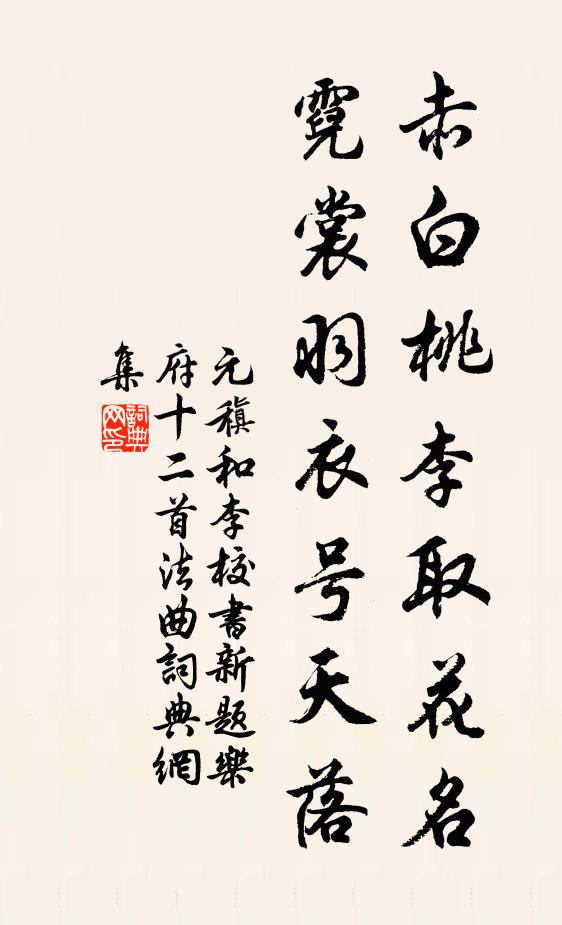 赤白桃李取花名
霓裳羽衣号天落
元稹和李校書新題樂
府十二首法曲詞典網
集
詞典
网印